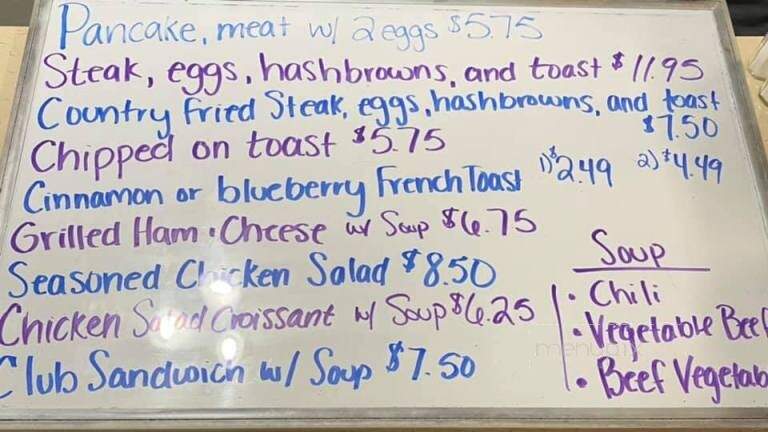 Pancake, meat w/ 2 eggs $5.75
Steak, eggs, hashbrowns, and toast $11.95
Country Fried Steak, eggs, hashbrowns, and toast
$7.50
Chipped on toast $5.75
Cinnamon or blueberry French Toast 1) $2.49 2) $4.49
Grilled Ham & Cheese w/ Soup $6.75
Seasoned Chicken Salad $8.50
Chicken Salad Croissant w/ Soup $6.25
Club Sandwich w/ Soup $7.50
Soup
• Chili
• Vegetable Beef
• Beef Vegetab